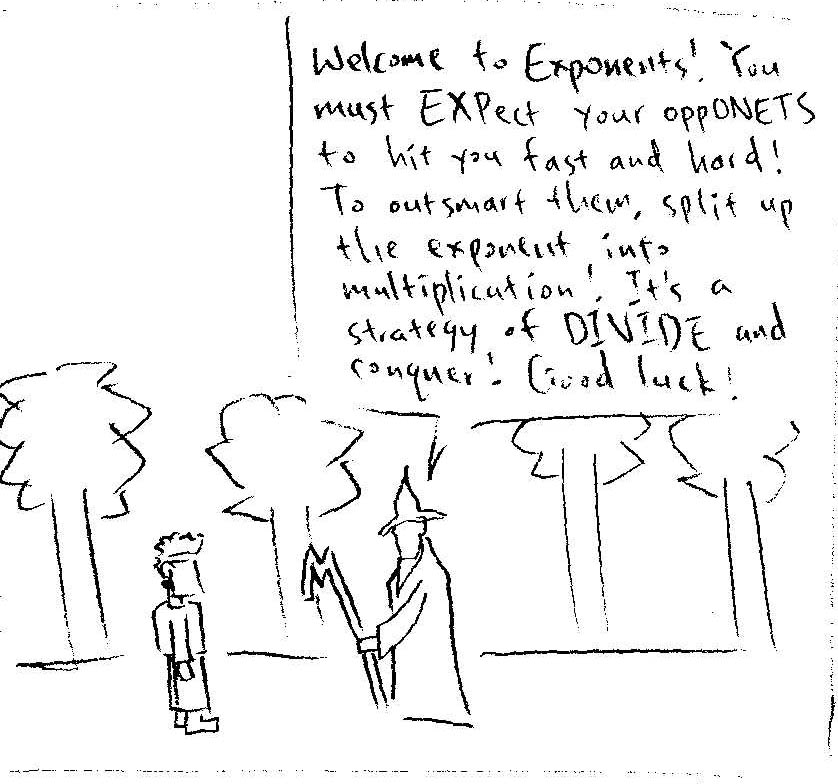 Welcome to Exponents! You
must EXPect your oppONETS
to hit you fast and hard!
To outsmart them, split up
the exponent into
multiplication! It's a
strategy of DIVIDE and
conquer! Good luck!